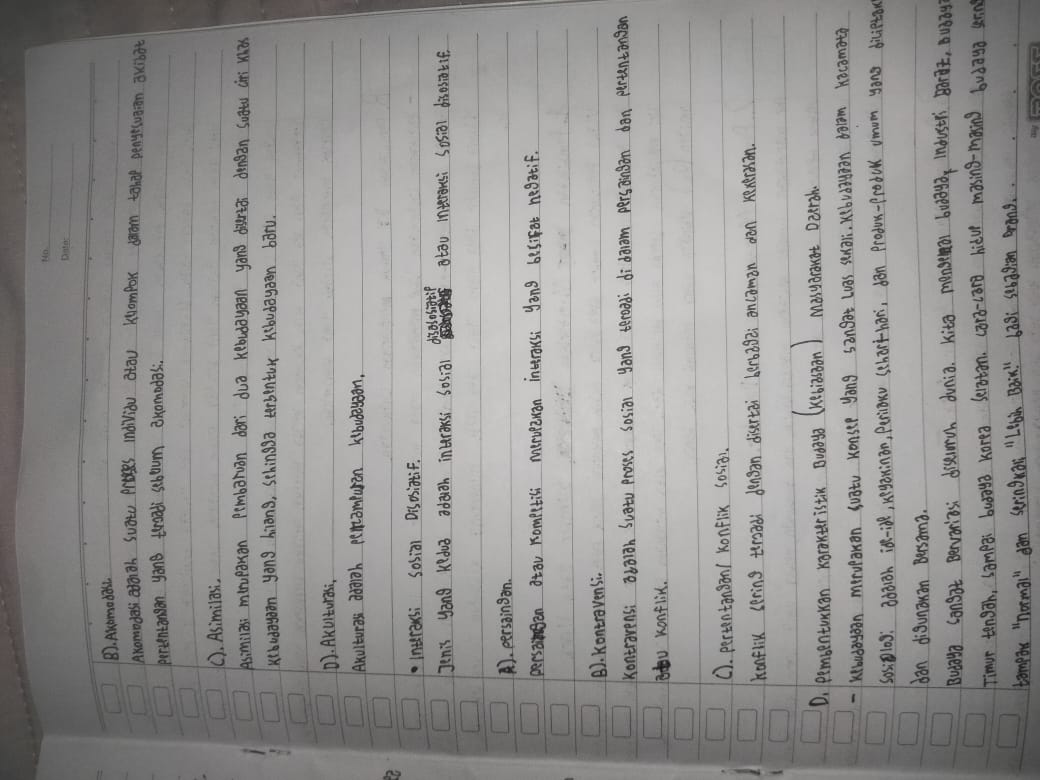 No.
Date:
B). Akomodasi.
Akomodasi adalah suatu proses individu atau kelompok dalam tahap penyesuaian akibat
pertentangan yang terjadi sebelum akomodasi.
C). Asimilasi.
Asimilasi merupakan pembauran dari dua kebudayaan yang disertai dengan suatu ciri khas
kebudayaan yang hilang, sehingga terbentuk kebudayaan baru.
D). Akulturasi,
Akulturasi adalah percampuran kebudayaan,
• Interaksi sosial Disosiatif.
Jenis yang kedua adalah interaksi sosial disosiatif atau interaksi sosial disosiatif.
A). persaingan.
persaingan atau kompetisi merupakan interaksi yang bersifat negatif.
B). Kontravensi.
Kontravensi adalah suatu proses sosial yang terjadi di dalam persaingan dan pertentangan
atau konflik.
C). pertentangan/ konflik sosial.
konflik sering terjadi dengan disertai berbagai ancaman dan kekerasan.
D. pembentukkan karakteristik Budaya (kebiasaan) Masyarakat Daerah.
- Kebudayaan merupakan suatu konsep yang sangat luas sekali. Kebudayaan dalam kacamata
sosiologi adalah ide-ide, keyakinan, perilaku sehari-hari, dan produk-produk umum yang diciptakan
dan digunakan Bersama.
Budaya sangat Bervariasi diseluruh dunia. kita mengenai budaya, Industri Barat, Budaya
Timur tengah, sampai budaya korea selatan. cara-cara hidup masing-masing budaya sering
tampak "normal" dan seringkali "Lebih Baik" bagi sebagian orang.